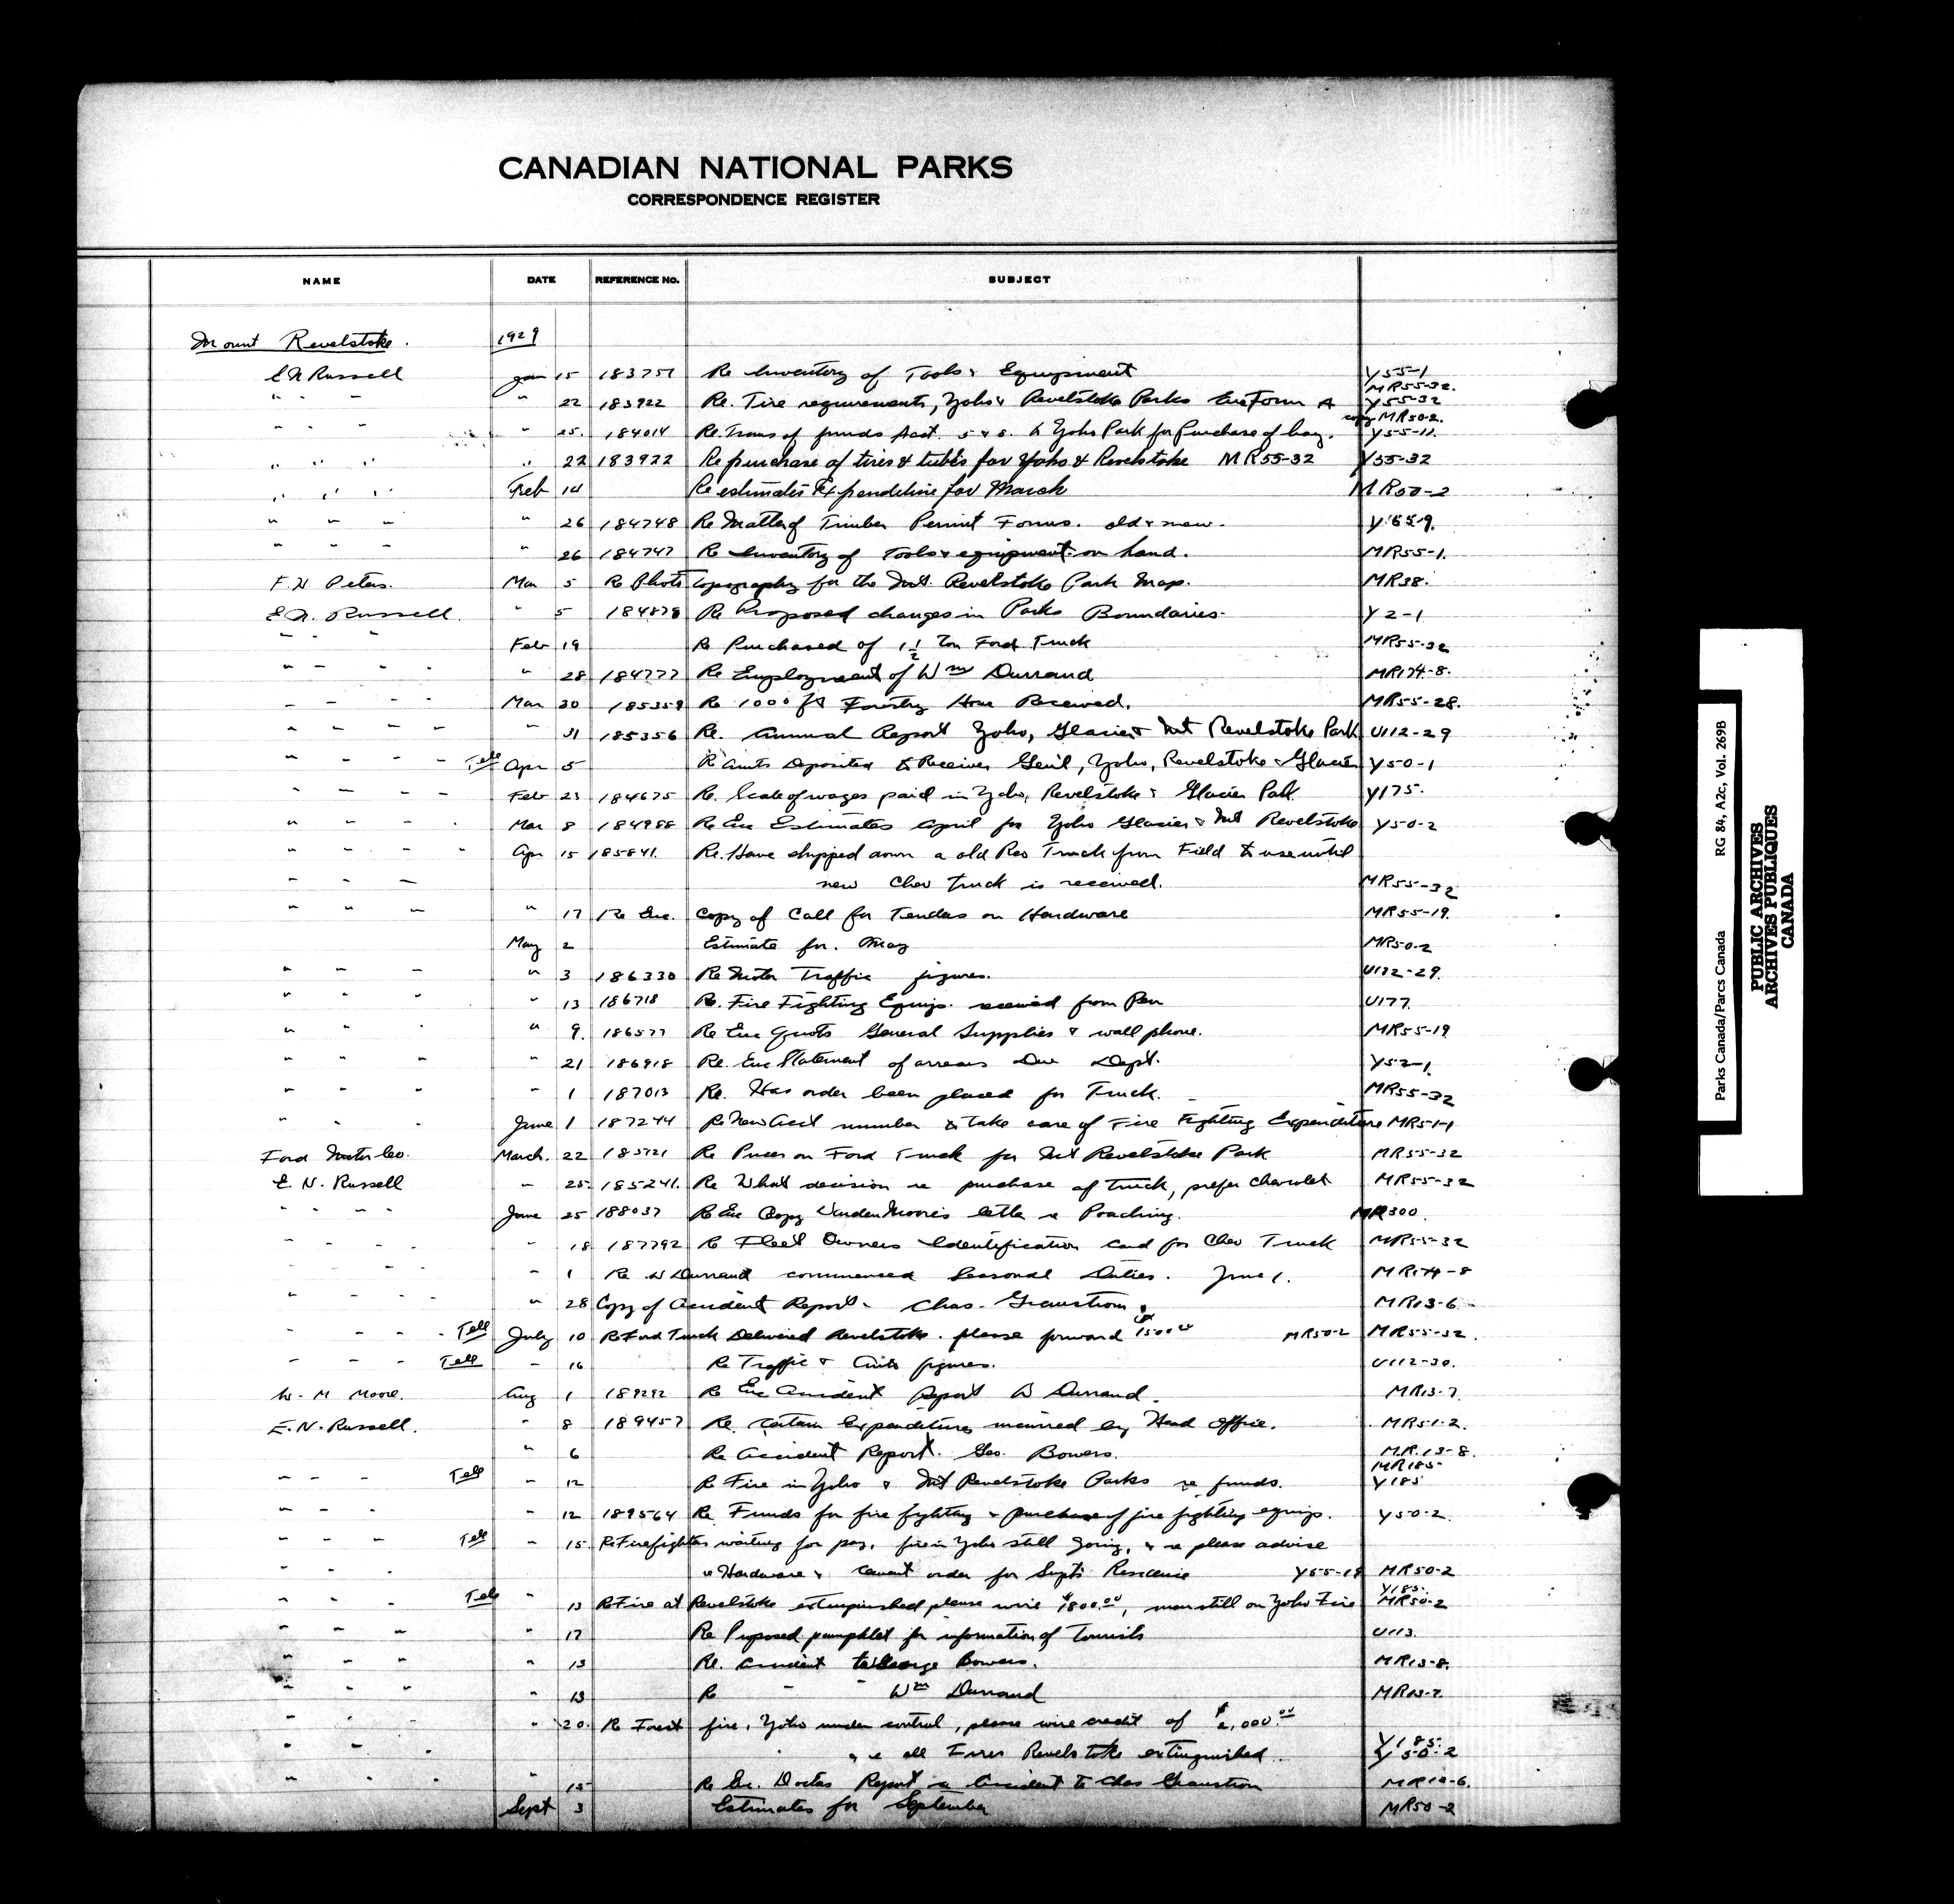 CANADIAN NATIONAL PARKS
CORRESPONDENCE REGISTER
NAME DATE REFERENCE NO. SUBJECT
Mount Revelstoke. 1929
E N Russell Jan 15 183751 Re Inventory of Tools & Equipment Y55-1
MR55-32.
" " " " 22 183922 Re. Tire requirements, Yoho & Revelstoke Parks Enc Form A Y55-32
copy MR50-2.
" " " " 25. 184014 Re. Trans of funds Acct. 5 & 8. to Yoho Park for Purchase of hay. Y55-11.
" " " " 22 183922 Re purchase of tires & tubes for Yoho & Revelstoke MR55-32 Y55-32
" " " Feb 14 Re estimates Expenditure for March MR50-2
" " " " 26 184748 Re Matter of Timber Permit Forms. old & new. Y165-9.
" " " " 26 184747 Re Inventory of Tools & equipment on hand. MR55-1.
F. H. Peters. Mar 5 Re Photo topography for the Mt. Revelstoke Park Map. MR38.
E. N. Russell. " 5 184878 Re Proposed changes in Parks Boundaries. Y2-1
" " " Feb 19 Re Purchased of 1½ Ton Ford Truck MR55-32
" " " " " 28 184777 Re Employment of Wm Durrand MR174-8.
" " " " Mar 20 185359 Re 1000 ft Forestry Hose Received. MR55-28.
" " " " " 31 185356 Re. Annual Report Yoho, Glacier & Mt Revelstoke Park U112-29
" " " " Tele Apr 5 Re Amts Deposited to Receiver Genl, Yoho, Revelstoke & Glacier Y50-1
" " " " Feb 23 184675 Re. Scale of wages paid in Yoho, Revelstoke & Glacier Park Y175.
" " " " Mar 8 184988 Re Enc Estimates April for Yoho Glacier & Mt Revelstoke Y50-2
" " " " Apr 15 185841. Re. Have shipped down a old Reo Truck from Field to use until
" " " new Chev truck is received. MR55-32
" " " " 17 Re Enc. Copy of Call for Tenders on Hardware MR55-19.
May 2 Estimate for. May MR50-2
" " " " 3 186330 Re Motor Traffic figures. U112-29.
" " " " 13 186718 Re. Fire Fighting Equip. received from U177.
" " " " 9. 186577 Re Enc Quots General Supplies & wall phone. MR55-19
" " " " 21 186918 Re. Enc Statement of arrears Due Dept. Y52-1.
" " " " 1 187013 Re. Has order been placed for Truck. MR55-32
" " " June 1 187244 Re New Acct number to take care of Fire Fighting Expenditure MR51-1
Ford Motor Co. March. 22 185121 Re Prices on Ford Truck for Mt Revelstoke Park MR55-32
E. N. Russell " 25. 185241. Re What decision re purchase of truck, prefer Chevrolet MR55-32
" " " " June 25 188037 Re Enc Copy Warden Moore's letter re Poaching. MR300.
" " " " " 18 187792 Re Fleet Owners Identification card for Chev Truck MR55-32
" " " " " 1 Re W Durrand commenced Seasonal Duties. June 1. MR174-8
" " " " " 28 Copy of Accident Report - Chas. Granstrom. MR13-6
" " " " Tele July 10 Re Ford Truck Delivered Revelstoke. please forward $1500.00 MR50-2 MR55-32.
" " " Tele " 16 Re Traffic & Auto figures. U112-30.
W. M Moore. Aug 1 189292 Re Enc Accident Report W Durrand. MR13-7
E. N. Russell. " 8 189457 Re. Certain Expenditures incurred by Head Office. MR51-2.
" 6 Re Accident Report. Geo. Bowers. MR.13-8.
MR185-
" " " Tele " 12 Re Fire in Yoho & Mt Revelstoke Parks re funds. Y185
" " " " 12 189564 Re Funds for fire fighting & purchase of fire fighting equip. Y50-2.
" " " Tele " 15. Re Firefighters waiting for pay, fire in Yoho still going, & re please advise
" " " re Hardware & Cement order for Supts Residence Y55-19 MR50-2
Y185.
" " " Tele " 13 Re Fire at Revelstoke extinguished please wire $1800.00, men still on Yoho Fire MR50-2
" " " " 17 Re Proposed pamphlet for information of Tourists U113.
" " " " 13 Re. Accident to George Bowers. MR13-8.
" " " " 13 Re " " Wm Durrand MR13-7.
" " " " 20. Re Forest fire, Yoho under control, please wire credit of $2,000.00
" " " & re all Fires Revelstoke extinguished. Y185.
Y50-2
" " " " 15 Re Enc. Doctors Report re Accident to Chas Granstrom MR13-6.
Sept 3 Estimates for September MR50-2
Parks Canada/Parcs Canada RG 84, A2c, Vol. 269B
PUBLIC ARCHIVES
ARCHIVES PUBLIQUES
CANADA